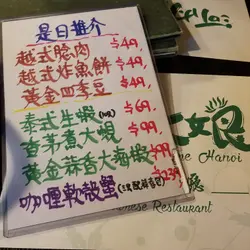 是日推介
越式脍肉 $49,
越式炸魚餅 $49,
黃金四季豆 $49,
泰式生蝦 $69,
香茅煮大蜆 $99,
黃金蒜香大海蝦 $99
咖喱軟殼蟹 $239
Hanoi
Restaurant